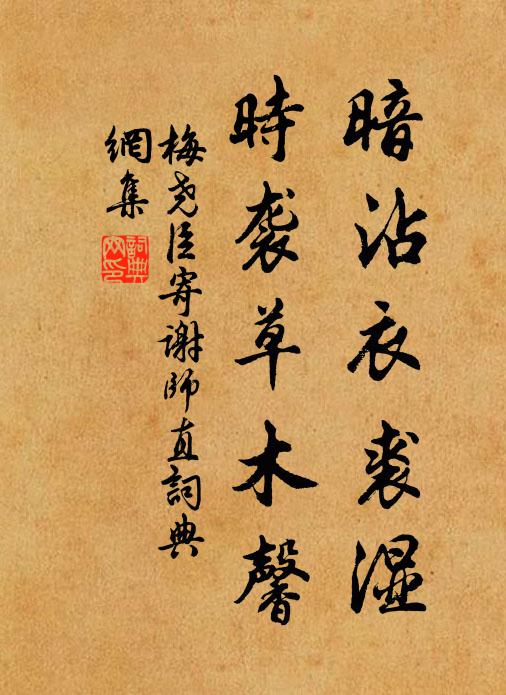 暗沾衣裘濕
時袭草木馨
梅尧臣寄谢師直詞典
網集
詞典
网印